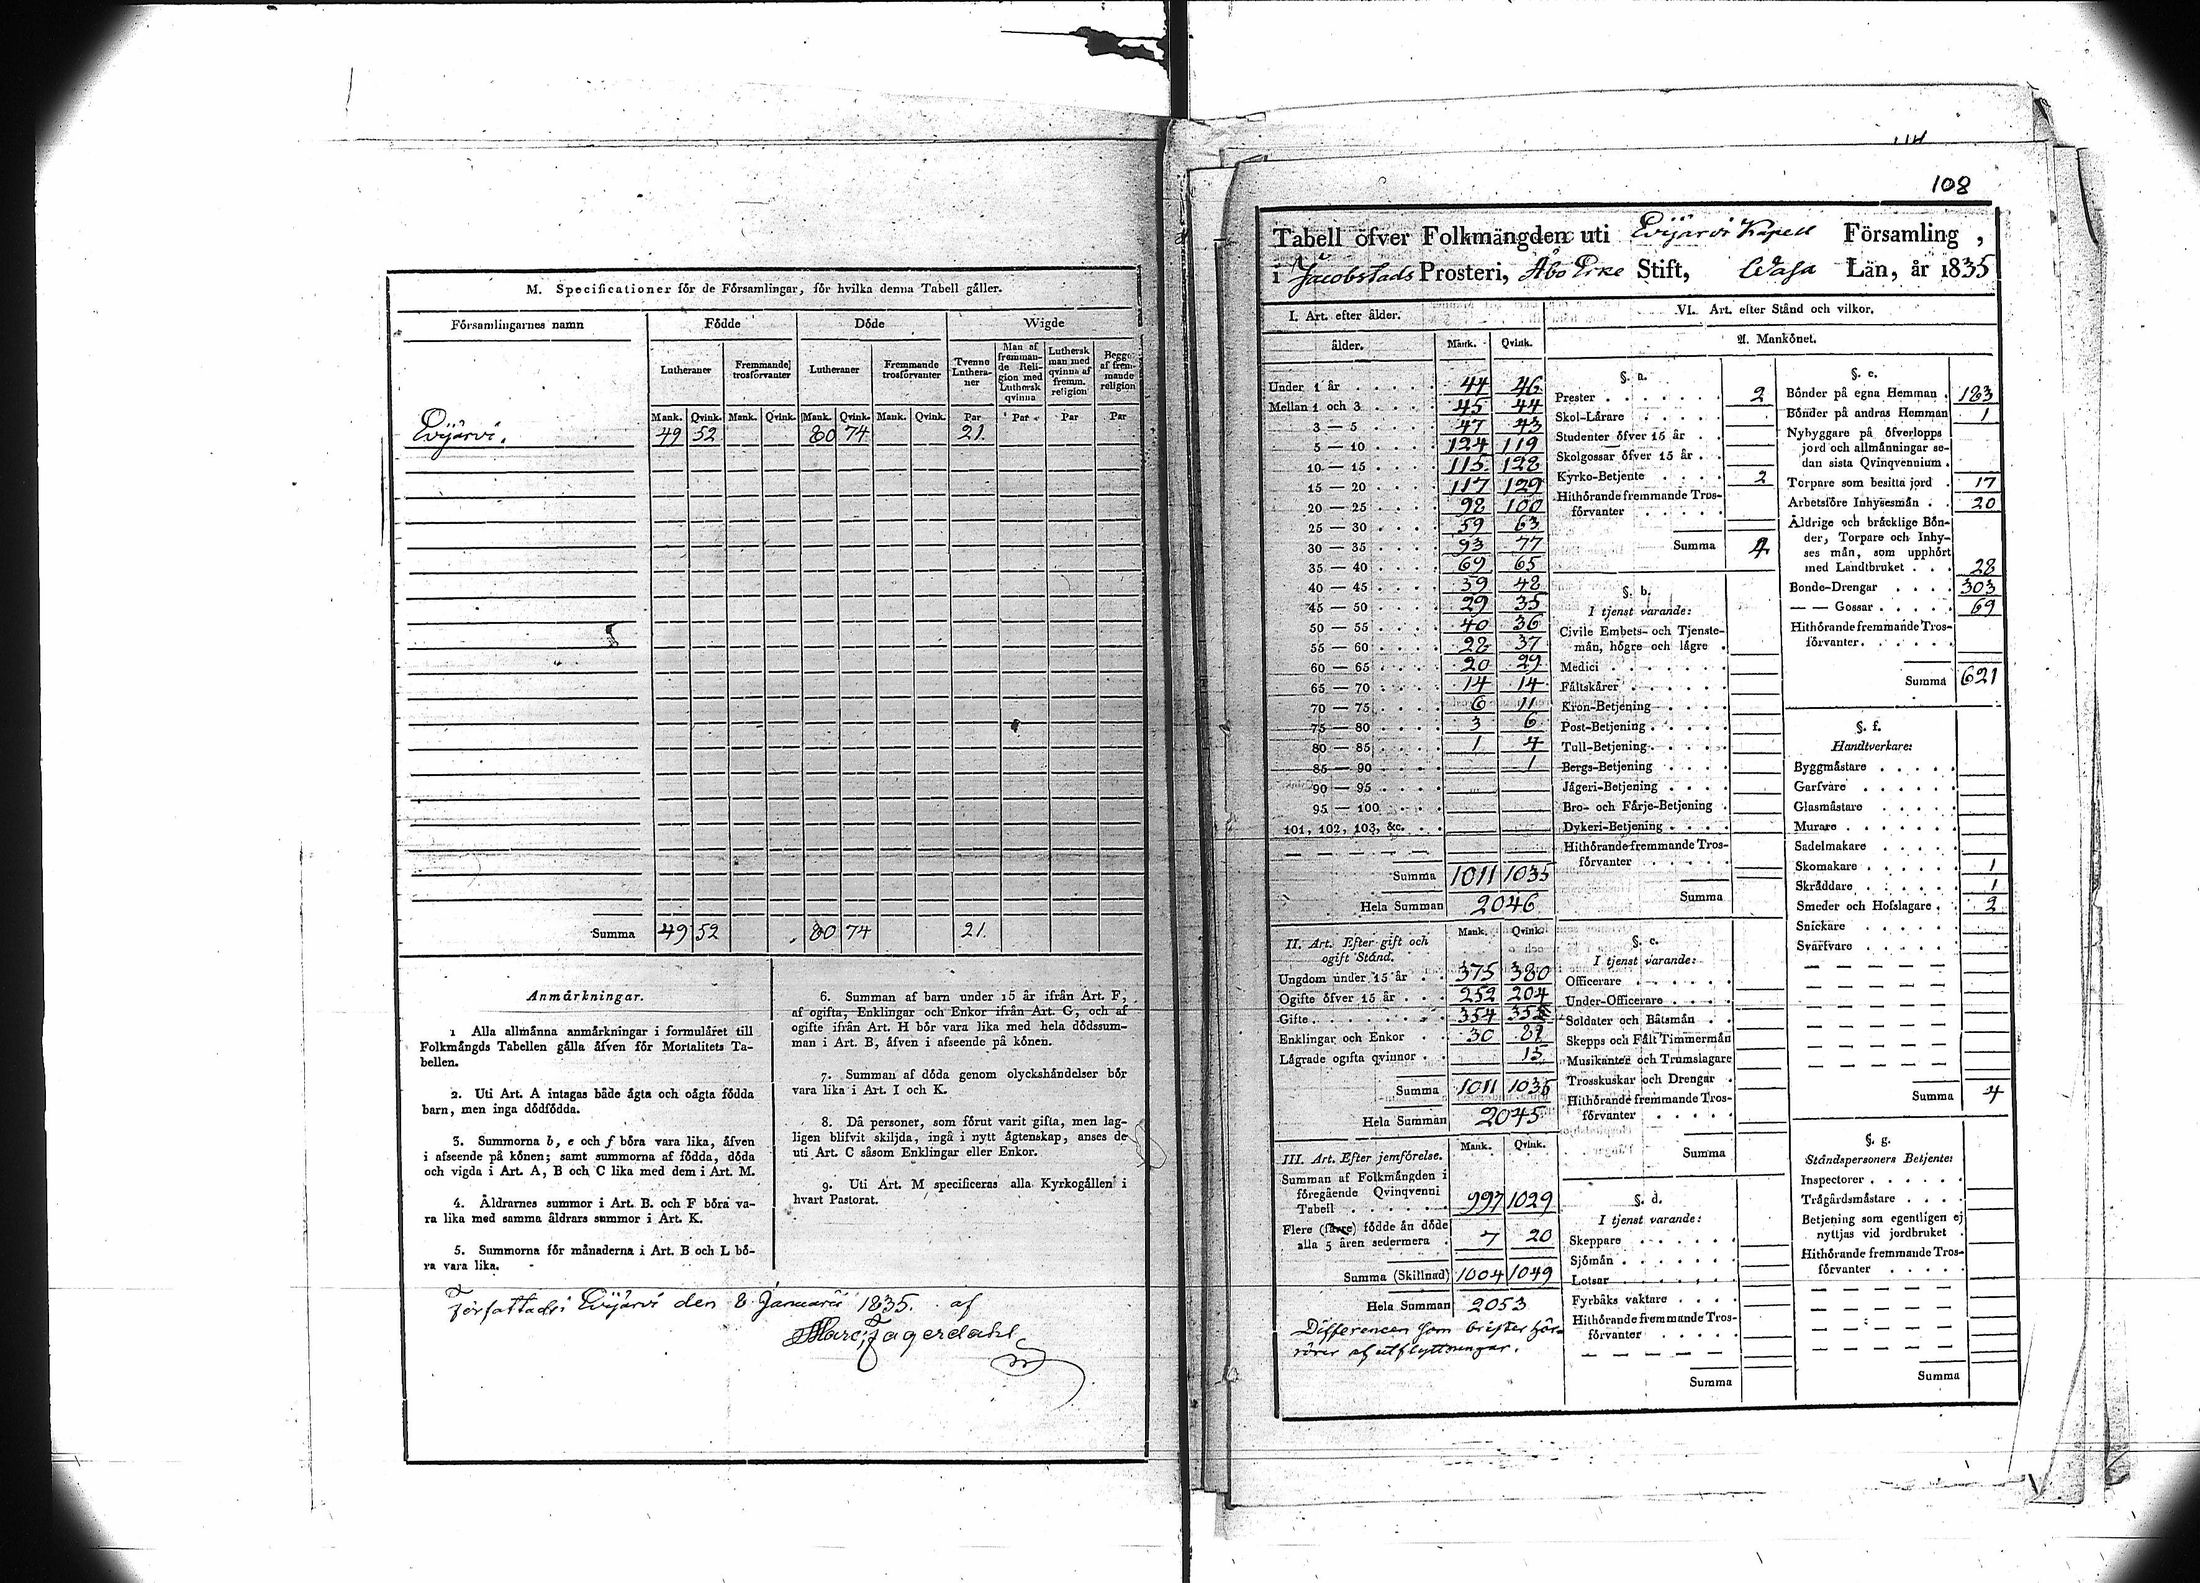 M. Specificationer för de Församlingar, för hvilka denna Tabell gäller.
Församlingarnes namn Födde Döde Wigde
Lutheraner Fremmande trosförvanter Lutheraner Fremmande trosförvanter Tvenne Lutheraner Man af fremmande Religion med Luthersk qvinna Luthersk man med qvinna af fremm. religion Begge af fremmande religion
Mank. Qvink. Mank. Qvink. Mank. Qvink. Mank. Qvink. Par Par Par Par
Evijärvi. 49 52 80 74 21.
Summa 49 52 80 74 21.
Anmärkningar.
1 Alla allmänna anmärkningar i formuläret till
Folkmängds Tabellen gälla äfven för Mortalitets Ta-
bellen.
2. Uti Art. A intagas både ägta och oägta födda
barn, men inga dödfödda.
3. Summorna b, e och f böra vara lika, äfven
i afseende på könen; samt summorna af födda, döda
och vigda i Art. A, B och C lika med dem i Art. M.
4. Åldrarnes summor i Art. B. och F böra va-
ra lika med samma åldrars summor i Art. K.
5. Summorna för månaderna i Art. B och L bö-
ra vara lika.
6. Summan af barn under 15 år ifrån Art. F,
af ogifta, Enklingar och Enkor ifrån Art. G, och af
gifte ifrån Art. H bör vara lika med hela dödssum-
man i Art. B, äfven i afseende på könen.
7. Summan af döda genom olyckshändelser bör
vara lika i Art. I och K.
8. Då personer, som förut varit gifta, men lag-
ligen blifvit skiljda, ingå i nytt ägtenskap, anses de
uti Art. C såsom Enklingar eller Enkor.
9. Uti Art. M specificeras alla Kyrkogällen i
hvart Pastorat.
Författad i Evijärvi den 8 Januarii 1835. af
Fagerdahl
108
Tabell öfver Folkmängden uti Evijärvi Kapell Församling,
i Jacobstads Prosteri, Åbo Erke Stift, Wasa Län, år 1835
I. Art. efter ålder.
ålder. Mank. Qvink.
Under 1 år 44 46
Mellan 1 och 3 45 44
3 — 5 47 43
5 — 10 124 119
10 — 15 115 128
15 — 20 117 129
20 — 25 98 100
25 — 30 59 63
30 — 35 93 77
35 — 40 69 65
40 — 45 59 48
45 — 50 29 35
50 — 55 40 36
55 — 60 28 37
60 — 65 20 29
65 — 70 14 14
70 — 75 6 11
75 — 80 3 6
80 — 85 1 4
85 — 90 1
90 — 95
95 — 100
101, 102, 103, &c.
Summa 1011 1035
Hela Summan 2046
II. Art. Efter gift och ogift Stånd. Mank. Qvink.
Ungdom under 15 år 375 380
Ogifte öfver 15 år 252 204
Gifte 354 355
Enklingar och Enkor 30 81
Lägrade ogifta qvinnor 15
Summa 1011 1035
Hela Summan 2045
III. Art. Efter jemförelse. Mank. Qvink.
Summan af Folkmängden i
föregående Qvinqvenni
Tabell 997 1029
Flere (färre) födde än döde
alla 5 åren sedermera 7 20
Summa (Skillnad) 1004 1049
Hela Summan 2053
Differencen som brister här-
rörer af utflyttningar.
VI. Art. efter Stånd och vilkor.
A. Mankönet.
§. a.
Prester 2
Skol-Lärare
Studenter öfver 15 år
Skolgossar öfver 15 år
Kyrko-Betjente 2
Hithörande fremmande Tros-
förvanter
Summa 4
§. b.
I tjenst varande:
Civile Embets- och Tjenste-
män, högre och lägre
Medici
Fältskärer
Kron-Betjening
Post-Betjening
Tull-Betjening
Bergs-Betjening
Jägeri-Betjening
Bro- och Färje-Betjening
Dykeri-Betjening
Hithörande fremmande Tros-
förvanter
Summa
§. c.
I tjenst varande:
Officerare
Under-Officerare
Soldater och Båtsmän
Skepps och Fält Timmermän
Musikanter och Trumslagare
Trosskuskar och Drengar
Hithörande fremmande Tros-
förvanter
Summa
§. d.
I tjenst varande:
Skeppare
Sjömän
Lotsar
Fyrbåks vaktare
Hithörande fremmande Tros-
förvanter
Summa
§. e.
Bönder på egna Hemman 183
Bönder på andras Hemman 1
Nybyggare på öfverlopps
jord och allmänningar se-
dan sista Qvinqvennium
Torpare som besitta jord 17
Arbetsföre Inhysesmän 20
Äldrige och bräcklige Bön-
der, Torpare och Inhy-
ses män, som upphört
med Landtbruket 28
Bonde-Drengar 303
— — Gossar 69
Hithörande fremmande Tros-
förvanter
Summa 621
§. f.
Handtverkare:
Byggmästare
Garfvare
Glasmästare
Murare
Sadelmakare
Skomakare 1
Skräddare 1
Smeder och Hofslagare 2
Snickare
Svarfvare
Summa 4
§. g.
Ståndspersoners Betjente:
Inspectorer
Trägårdsmästare
Betjening som egentligen ej
nyttjas vid jordbruket
Hithörande fremmande Tros-
förvanter
Summa